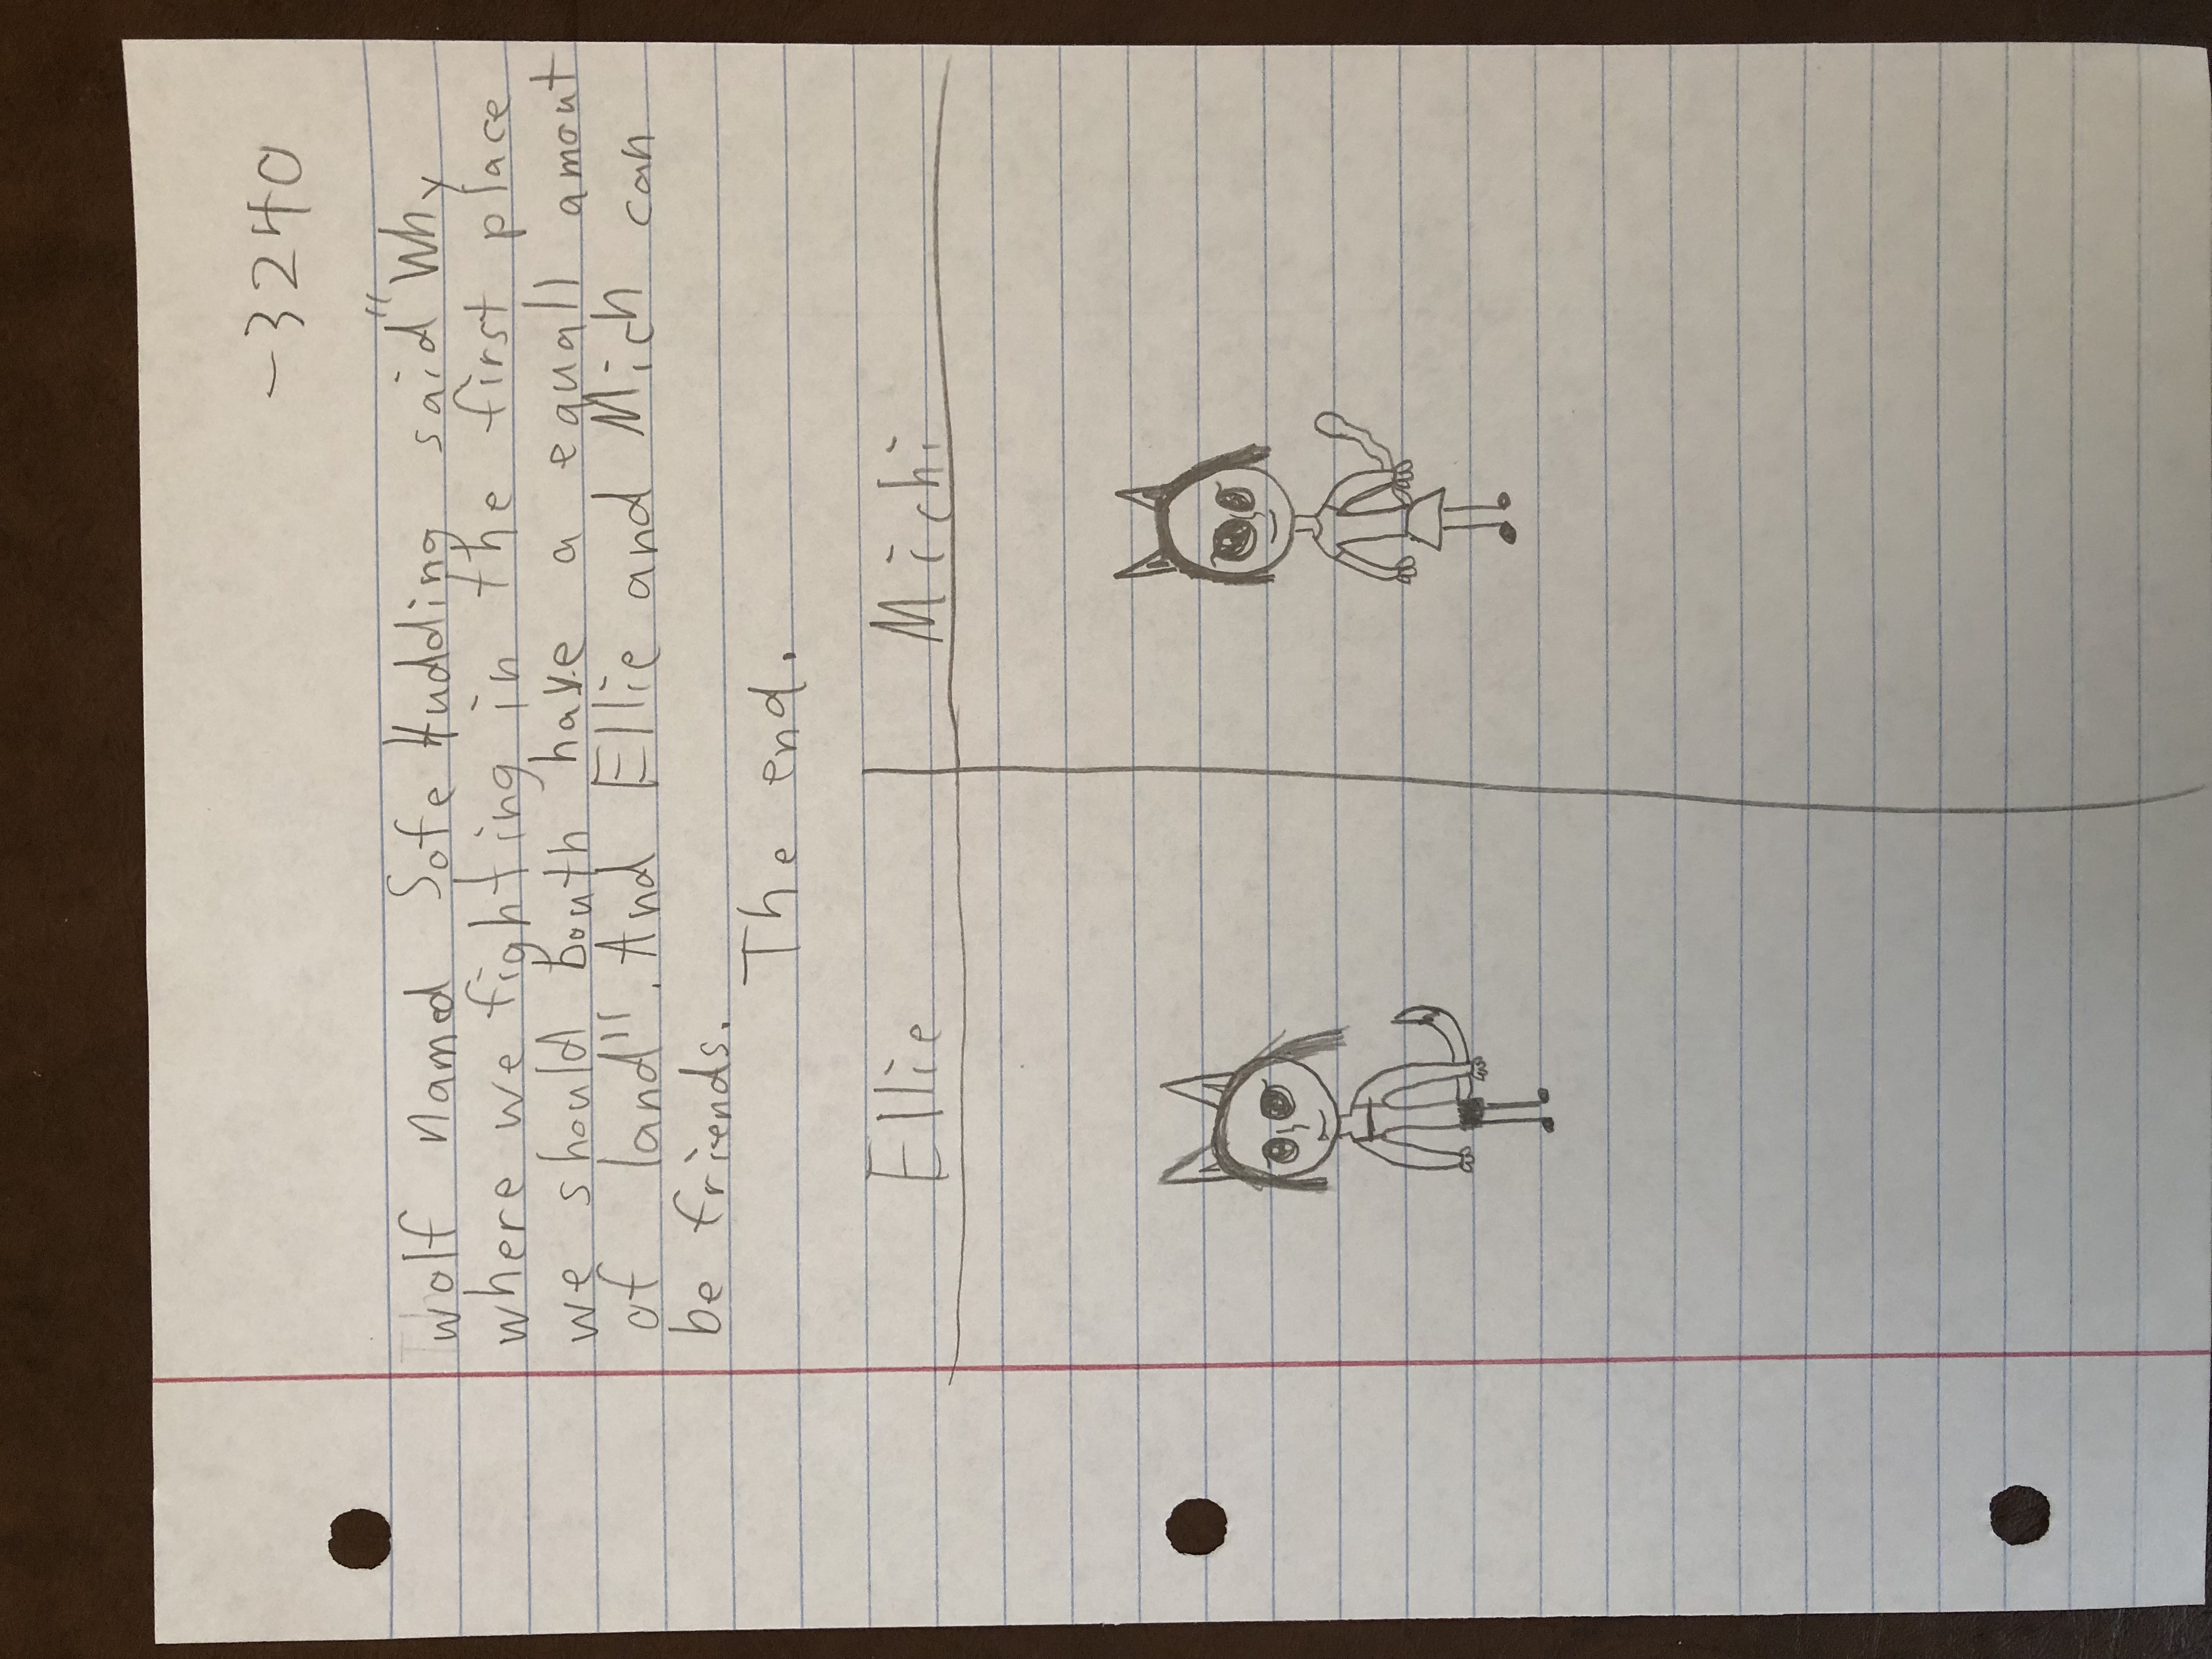 -3240
wolf named Sofe Hudding said "Why
where we fighting in the first place
we should bouth have a equall amout
of land". And Ellie and Mich can
be friends.
The end.
Ellie Michi